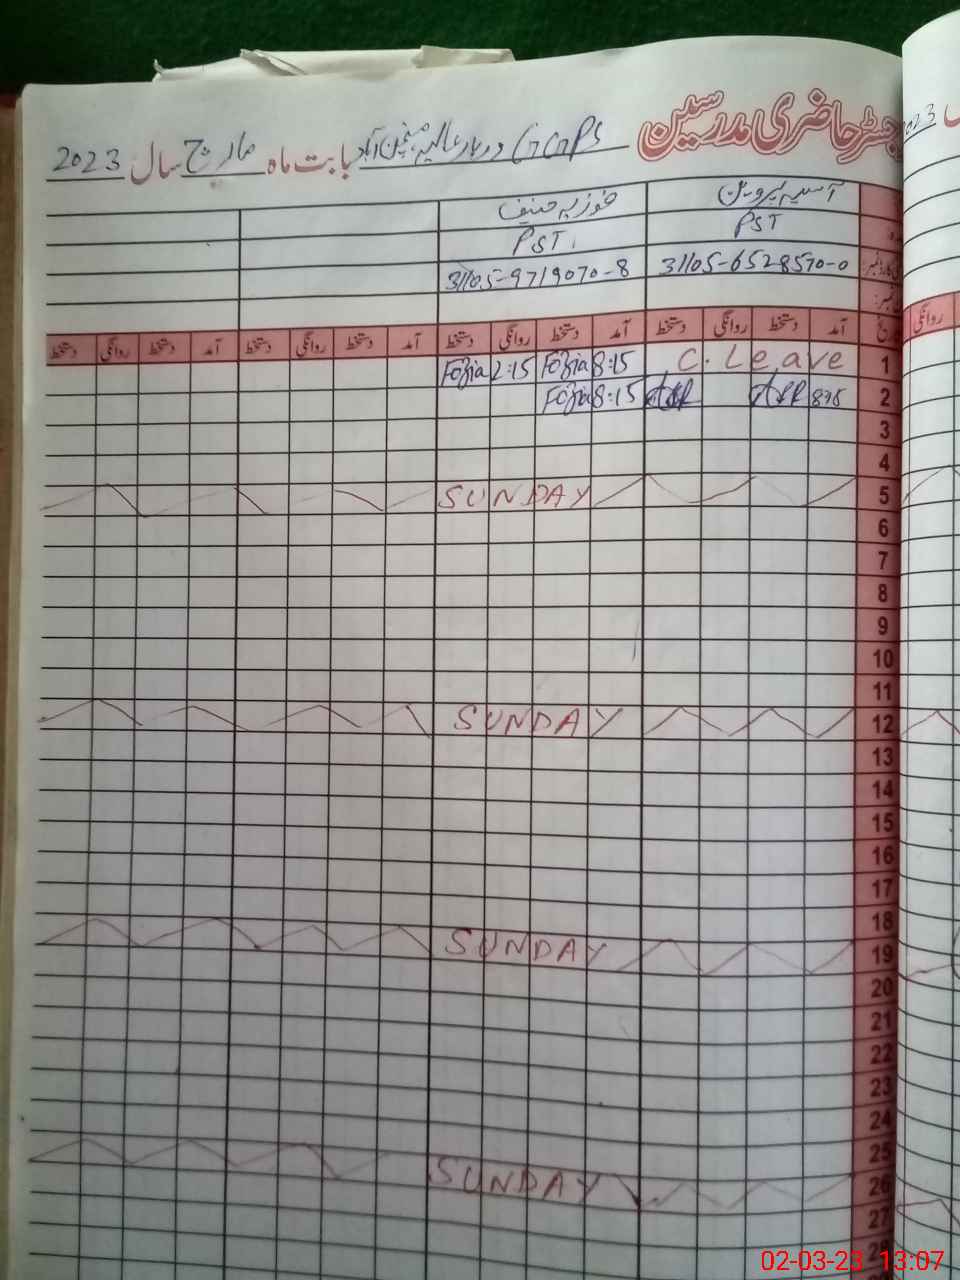 رجسٹر حاضری مدرسین GGPS دربار عالیہ آباد بابت ماہ مارچ سال 2023
آسیہ پروین فوزیہ حنیف
PST PST
31105-6528570-0 31105-9719070-8
آمد دستخط روانگی دستخط آمد دستخط روانگی دستخط آمد دستخط روانگی دستخط آمد دستخط روانگی دستخط
1 C. Leave 8:15 Fozia 2:15 Fozia
2 8:15 Fozia
3
4
5 SUNDAY
6
7
8
9
10
11
12 SUNDAY
13
14
15
16
17
18
19 SUNDAY
20
21
22
23
24
25
26 SUNDAY
27
28
2023
روانگی
02-03-23 13:07